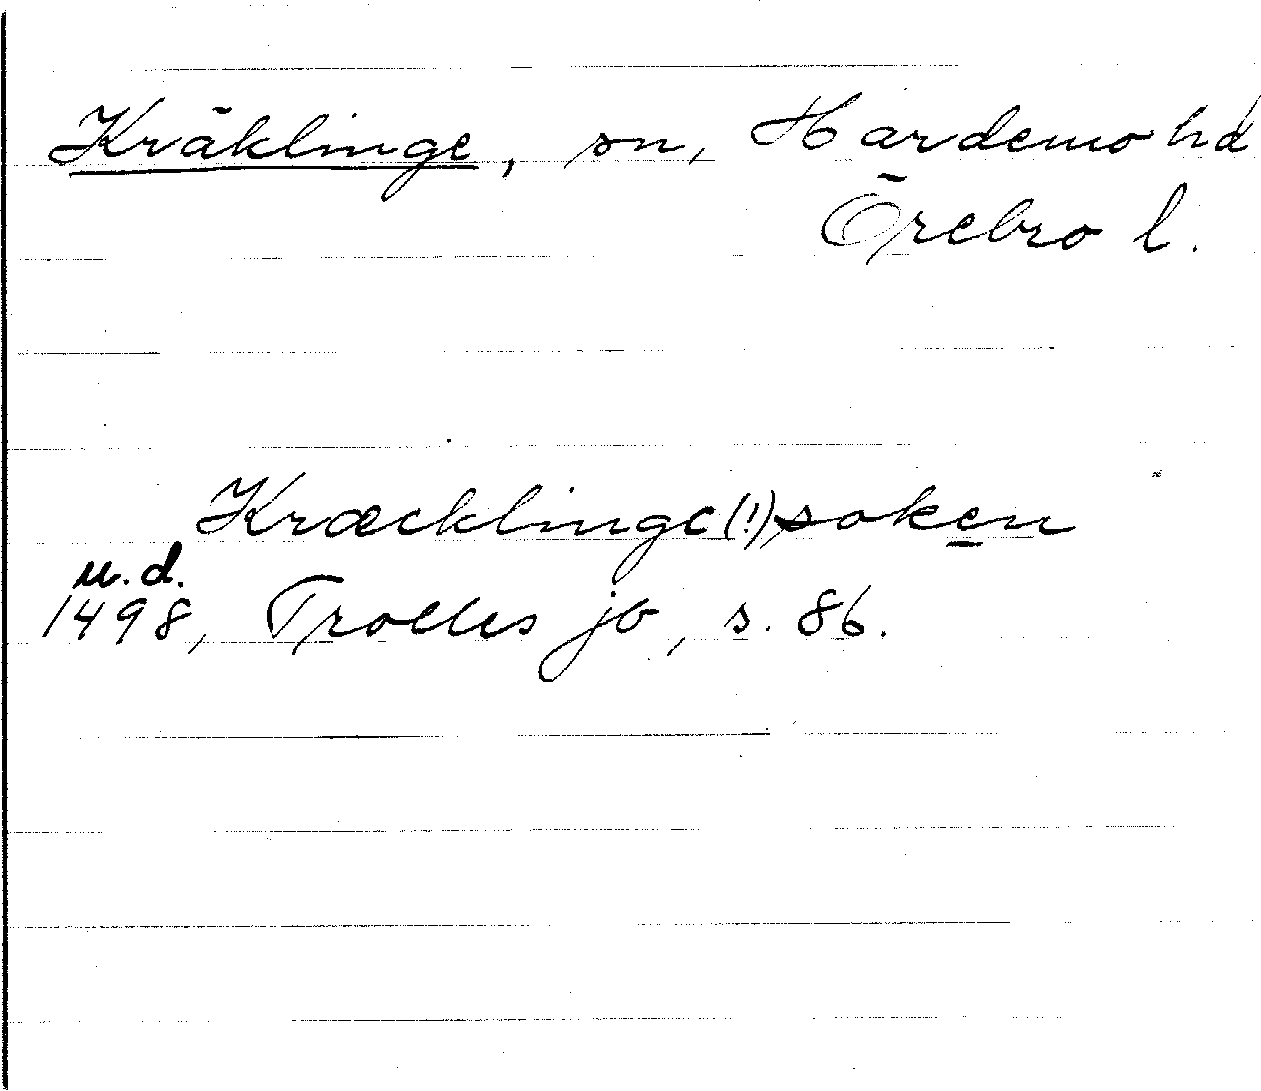 Kräklinge, sn, Hardemo hd
Örebro l.
Kræcklinge(!)soken
u.d.
1498, Trolles jb, s. 86.